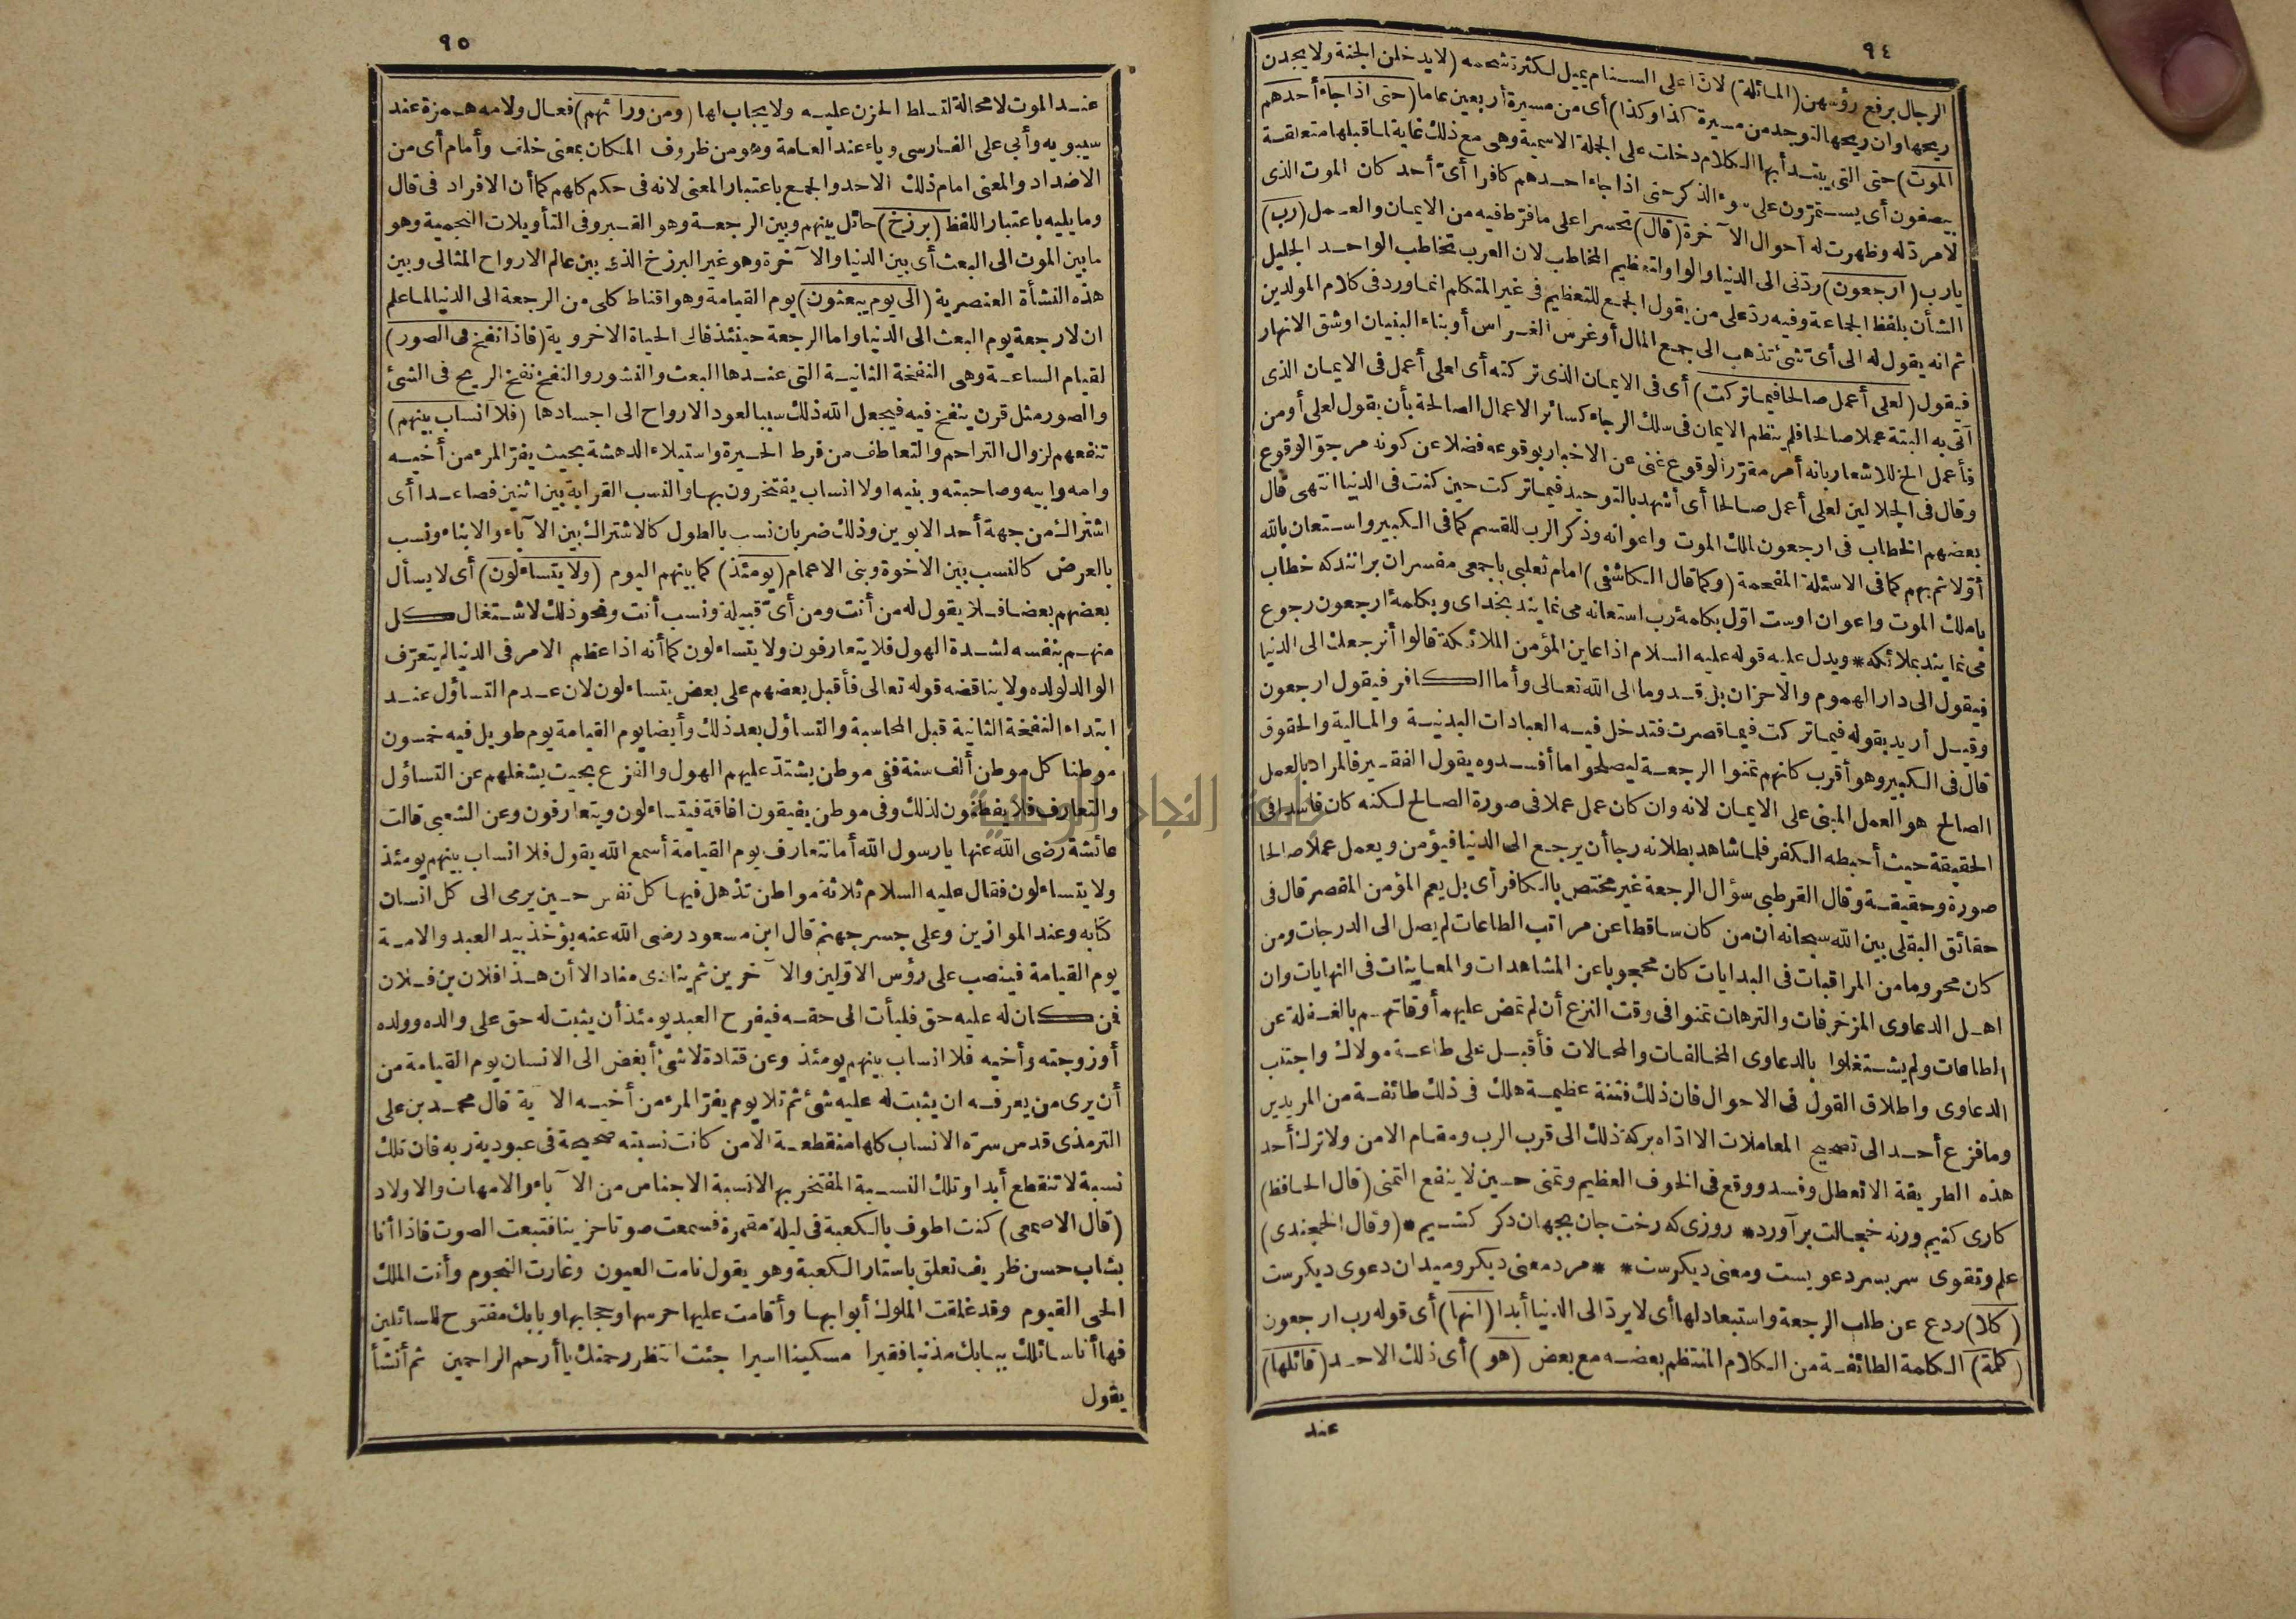 ٩٤
الرجال برفع رؤسهن (المائلة) لان اعلى السنام يميل لكثرة شحمه (لايدخلن الجنة ولا يجدن
ريحها وان ريحها لتوجد من مسيرة كذا وكذا) أى من مسيرة أربعين عاما (حتى اذا جاء أحدهم
الموت) حتى التى يبتدأ بها الكلام دخلت على الجملة الاسمية وهى مع ذلك غاية لما قبلها متعلقة
بيصفون أى يستمرّون على سوء الذكر حتى اذا جاء احدهم كافرا أىّ أحد كان الموت الذى
لا مردّ له وظهرت له أحوال الآخرة (قال) تحسرا على ما فرّط فيه من الايمان والعمل (رب)
يا رب (ارجعون) ردّنى الى الدنيا والواو لتعظيم المخاطب لان العرب تخاطب الواحد الجليل
الشأن بلفظ الجماعة وفيه ردّ على من يقول الجمع للتعظيم فى غير المتكلم انما ورد فى كلام المولدين
ثم انه يقول له الى أىّ شئ تذهب الى جمع المال أو غرس الغراس أو بناء البنيان او شق الانهار
فيقول (لعلى أعمل صالحا فيما تركت) أى فى الايمان الذى تركته أى لعلى أعمل فى الايمان الذى
آتى به البتة عملا صالحا فلم ينظم الايمان فى سلك الرجاء كسائر الاعمال الصالحة بأن يقول لعلى أومن
فأعمل الخ للاشعار بانه أمر مقرّر الوقوع غنى عن الاخبار بوقوعه فضلا عن كونه مرجوّ الوقوع
وقال فى الجلالين لعلى أعمل صالحا أى أشهد بالتوحيد فيما تركت حين كنت فى الدنيا انتهى قال
بعضهم الخطاب فى ارجعون لملك الموت واعوانه وذكر الرب للقسم كما فى الكبير واستعان بالله
أوّلا ثم بهم كما فى الاسئلة المقحمة (وكما قال الكاشفى) امام ثعلبى با جمعى مفسران برانند كه خطاب
با ملك الموت واعوان اوست اوّل بكلمهٔ رب استعانه مى نمايند بخداى وبكلمهٔ ارجعون رجوع
مى نمايند بملائكه * ويدل عليه قوله عليه السلام اذا عاين المؤمن الملائكة قالوا أنرجعك الى الدنيا
فيقول الى دار الهموم والاحزان بل قدوما الى الله تعالى وأما الكافر فيقول ارجعون
وقيل أريد بقوله فيما تركت فيما قصرت فتدخل فيه العبادات البدنية والمالية والحقوق
قال فى الكبير وهو أقرب كانهم تمنوا الرجعة ليصلحوا ما أفسدوه يقول الفقير فالمراد بالعمل
الصالح هو العمل المبنى على الايمان لانه وان كان عمل عملا فى صورة الصالح لكنه كان فاسدا فى
الحقيقة حيث أحبطه الكفر فلما شاهد بطلانه رجا أن يرجع الى الدنيا فيؤمن ويعمل عملا صالحا
صورة وحقيقة وقال القرطبى سؤال الرجعة غير مختص بالكافر أى بل يعم المؤمن المقصر قال فى
حقائق البقلى بين الله سبحانه ان من كان ساقطا عن مراتب الطاعات لم يصل الى الدرجات ومن
كان محروما من المراقبات فى البدايات كان محجوبا عن المشاهدات والمعاينات فى النهايات وان
اهل الدعاوى المزخرفات والترهات تمنوا فى وقت النزع أن لم تمض عليهم أوقاتهم بالغفلة عن
الطاعات ولم يشتغلوا بالدعاوى المخالفات والمحالات فأقبل على طاعة مولاك واجتنب
الدعاوى واطلاق القول فى الاحوال فان ذلك فتنة عظيمة هلك فى ذلك طائفة من المريدين
وما فزع أحد الى تصحيح المعاملات الا ادّاه بركة ذلك الى قرب الرب ومقام الامن ولا ترك أحد
هذه الطريقة الا تعطل وفسد ووقع فى الخوف العظيم وتمنى حين لا ينفع التمنى (قال الحافظ)
كارى كنيم ورنه خجالت برآورد * روزى كه رخت جان بجهان دكر كشيم * (وقال الخجندى)
علم وتقوى سر بسر دعويست ومعنى ديكرست * * مرد معنى ديكر وميدان دعوى ديكرست
(كلا) ردع عن طلب الرجعة واستبعاد لها أى لا يردّ الى الدنيا أبدا (انها) أى قوله رب ارجعون
(كلمة) الكلمة الطائفة من الكلام المنتظم بعضه مع بعض (هو) أى ذلك الاحد (قائلها)
عند
٩٥
عند الموت لا محالة لتسلط الحزن عليه ولا يجاب لها (ومن ورائهم) فعال ولامه همزة عند
سيبويه وأبى على الفارسى وياء عند العامة وهو من ظروف المكان بمعنى خلف وأمام أى من
الاضداد والمعنى امام ذلك الاحد والجمع باعتبار المعنى لانه فى حكم كلهم كما أن الافراد فى قال
وما يليه باعتبار اللفظ (برزخ) حائل بينهم وبين الرجعة وهو القبر وفى التأويلات النجمية وهو
ما بين الموت الى البعث أى بين الدنيا والآخرة وهو غير البرزخ الذى بين عالم الارواح المثالى وبين
هذه النشأة العنصرية (الى يوم يبعثون) يوم القيامة وهو اقناط كلى من الرجعة الى الدنيا لما علم
ان لا رجعة يوم البعث الى الدنيا واما الرجعة حينئذ فالى الحياة الاخروية (فاذا نفخ فى الصور)
لقيام الساعة وهى النفخة الثانية التى عندها البعث والنشور والنفخ نفخ الريح فى الشئ
والصور مثل قرن ينفخ فيه فيجعل الله ذلك سببا لعود الارواح الى اجسادها (فلا انساب بينهم)
تنفعهم لزوال التراحم والتعاطف من فرط الحيرة واستيلاء الدهشة بحيث يفرّ المرء من أخيه
وامه وابيه وصاحبته وبنيه اولا انساب يفتخرون بها والنسب القرابة بين اثنين فصاعدا أى
اشتراك من جهة أحد الابوين وذلك ضربان نسب بالطول كالاشتراك بين الآباء والابناء ونسب
بالعرض كالنسب بين الاخوة وبنى الاعمام (يومئذ) كما بينهم اليوم (ولا يتساءلون) أى لا يسأل
بعضهم بعضا فلا يقول له من أنت ومن أىّ قبيلة ونسب أنت ونحو ذلك لاشتغال كل
منهم بنفسه لشدة الهول فلا يتعارفون ولا يتساءلون كما أنه اذا عظم الامر فى الدنيا لم يتعرّف
الوالد لولده ولا يناقضه قوله تعالى فأقبل بعضهم على بعض يتساءلون لان عدم التساؤل عند
ابتداء النفخة الثانية قبل المحاسبة والتساؤل بعد ذلك وأيضا يوم القيامة يوم طويل فيه خمسون
موطنا كل موطن ألف سنة ففى موطن يشتدّ عليهم الهول والفزع بحيث يشغلهم عن التساؤل
والتعارف فلا يفطنون لذلك وفى موطن يفيقون افاقة فيتساءلون ويتعارفون وعن الشعبى قالت
عائشة رضى الله عنها يا رسول الله أما نتعارف يوم القيامة أسمع الله يقول فلا انساب بينهم يومئذ
ولا يتساءلون فقال عليه السلام ثلاثة مواطن تذهل فيها كل نفس حين يرمى الى كل انسان
كتابه وعند الموازين وعلى جسر جهنم قال ابن مسعود رضى الله عنه يؤخذ بيد العبد والامة
يوم القيامة فينصب على رؤس الاوّلين والآخرين ثم ينادى مناد الا أن هذا فلان بن فلان
فمن كان له عليه حق فليأت الى حقه فيفرح العبد يومئذ أن يثبت له حق على والده وولده
أو زوجته وأخيه فلا انساب بينهم يومئذ وعن قتادة لا شئ أبغض الى الانسان يوم القيامة من
أن يرى من يعرفه ان يثبت له عليه شئ ثم تلا يوم يفرّ المرء من أخيه الآية قال محمد بن على
الترمذى قدس سرّه الانساب كلها منقطعة الا من كانت نسبته صحيحة فى عبودية ربه فان تلك
نسبة لا تنقطع أبدا وتلك النسبة المفتخر بها لا نسبة الاجناس من الآباء والامهات والاولاد
(قال الاصمعى) كنت اطوف بالكعبة فى ليلة مقمرة فسمعت صوتا حزينا فتبعت الصوت فاذا أنا
بشاب حسن ظريف تعلق باستار الكعبة وهو يقول نامت العيون وغارت النجوم وأنت الملك
الحى القيوم وقد غلقت الملوك أبوابها وأقامت عليها حرسها وحجابها وبابك مفتوح للسائلين
فها أنا سائلك ببابك مذنبا فقيرا مسكينا اسيرا جئت انتظر رحمتك يا أرحم الراحمين ثم أنشأ
يقول
النجاح